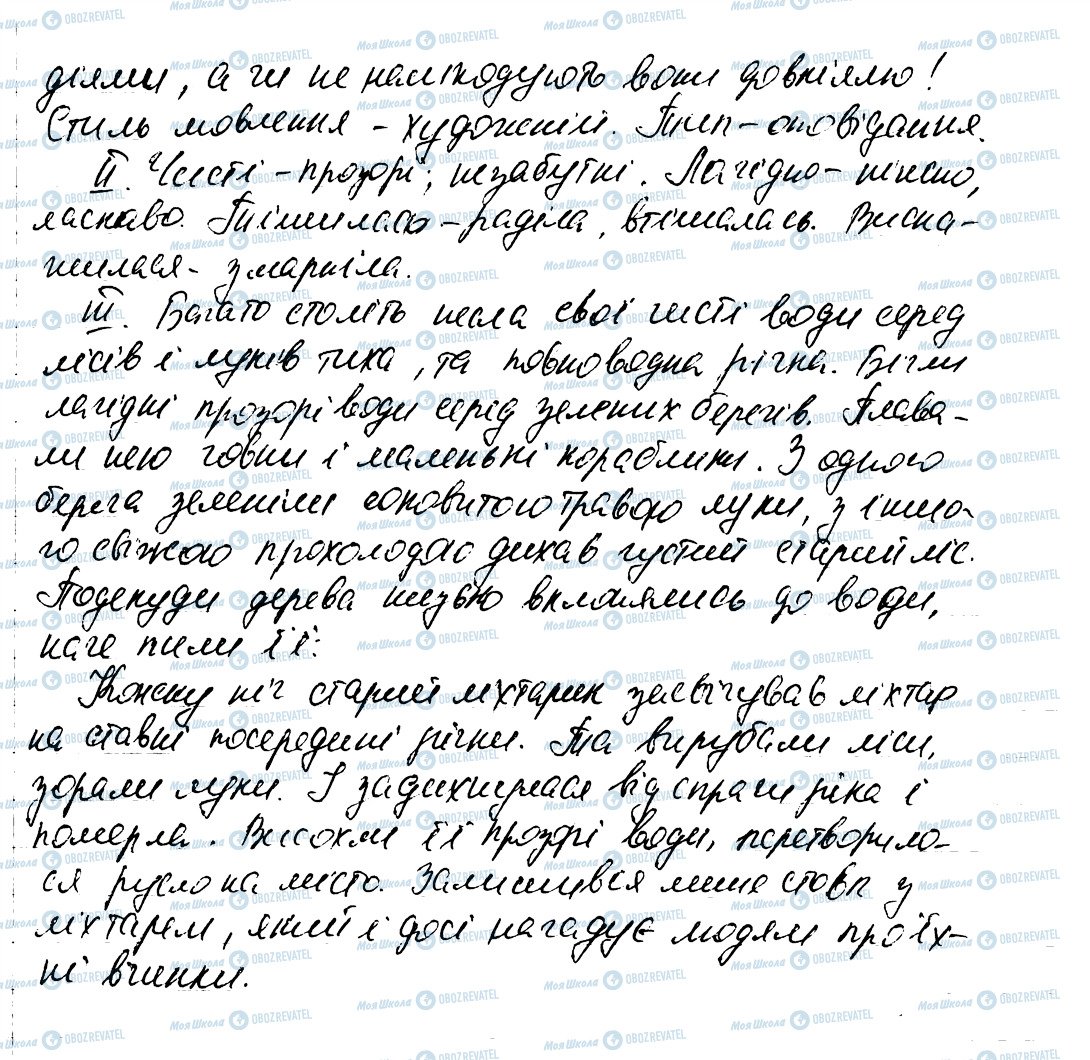 діями, а чи не нашкодують вони довкіллю!
Стиль мовлення – художній. Тип – оповідання.
II. Чисті – прозорі; незабутні. Лагідно – ніжно,
ласкаво. Тішилась – раділа, втішалась. Висна-
жилася – змарніла.
III. Багато століть несла свої чисті води серед
лісів і луків тиха, та повноводна річка. Бігли
лагідні прозорі води серед зелених берегів. Плава-
ли нею човни і маленькі кораблики. З одного
берега зеленіли соковитою травою луки, з іншо-
го свіжою прохолодою дихав густий старий ліс.
Подекуди дерева низько вклонялись до води,
наче пили її.
Кожну ніч старий ліхтарик засвічував ліхтар
на ставні посередині річки. Та вирубали ліси,
зорали луки. І задихнулася від спраги ріка і
померла. Висохли її прозорі води, перетворило-
ся русло на місто. Залишився лише стовп з
ліхтарем, який і досі нагадує людям про їх-
ні вчинки.